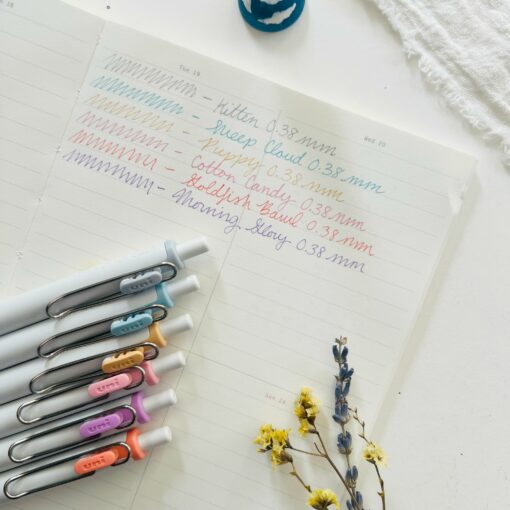 Tue 19
Wed 20
Kitten 0.38 mm
Sheep Cloud 0.38 mm
Puppy 0.38 mm
Cotton Candy 0.38 mm
Goldfish Bowl 0.38 mm
Morning Glory 0.38 mm